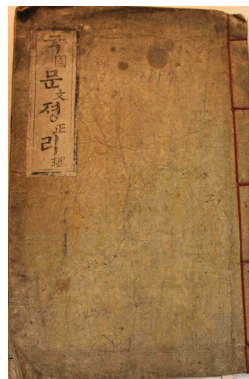 국國문文졍正리理